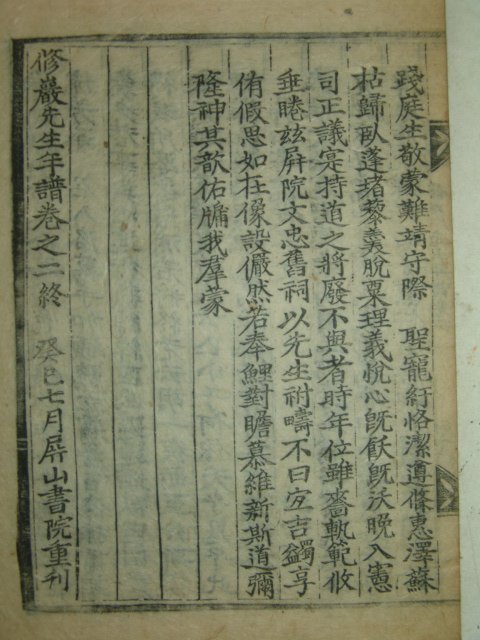 踐庭生敬蒙難靖守際 聖寵紆恪潔遵條惠澤蘇
枯歸臥蓬堵藜羹脫粟理義悅心旣飫旣沃晚入憲
司正議寔持道之將廢不與者時年位雖嗇軌範攸
垂睠玆屛院文忠舊祠以先生祔疇不曰宜吉蠲享
侑假思如在像設儼然若奉鯉對瞻慕維新斯道彌
隆神其歆佑牖我羣蒙
修巖先生年譜卷之二終 癸巳七月屛山書院重刊